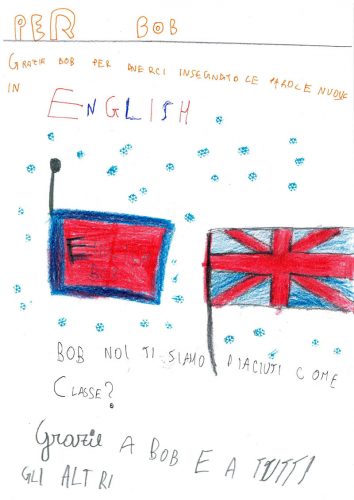 PER BOB
GRAZIE BOB PER AVERCI INSEGNATO LE PAROLE NUOVE
IN
ENGLISH
E
BOB NOI TI SIAMO PIACIUTI COME
CLASSE?
Grazie A BOB E A TUTTI
GLI ALTRI